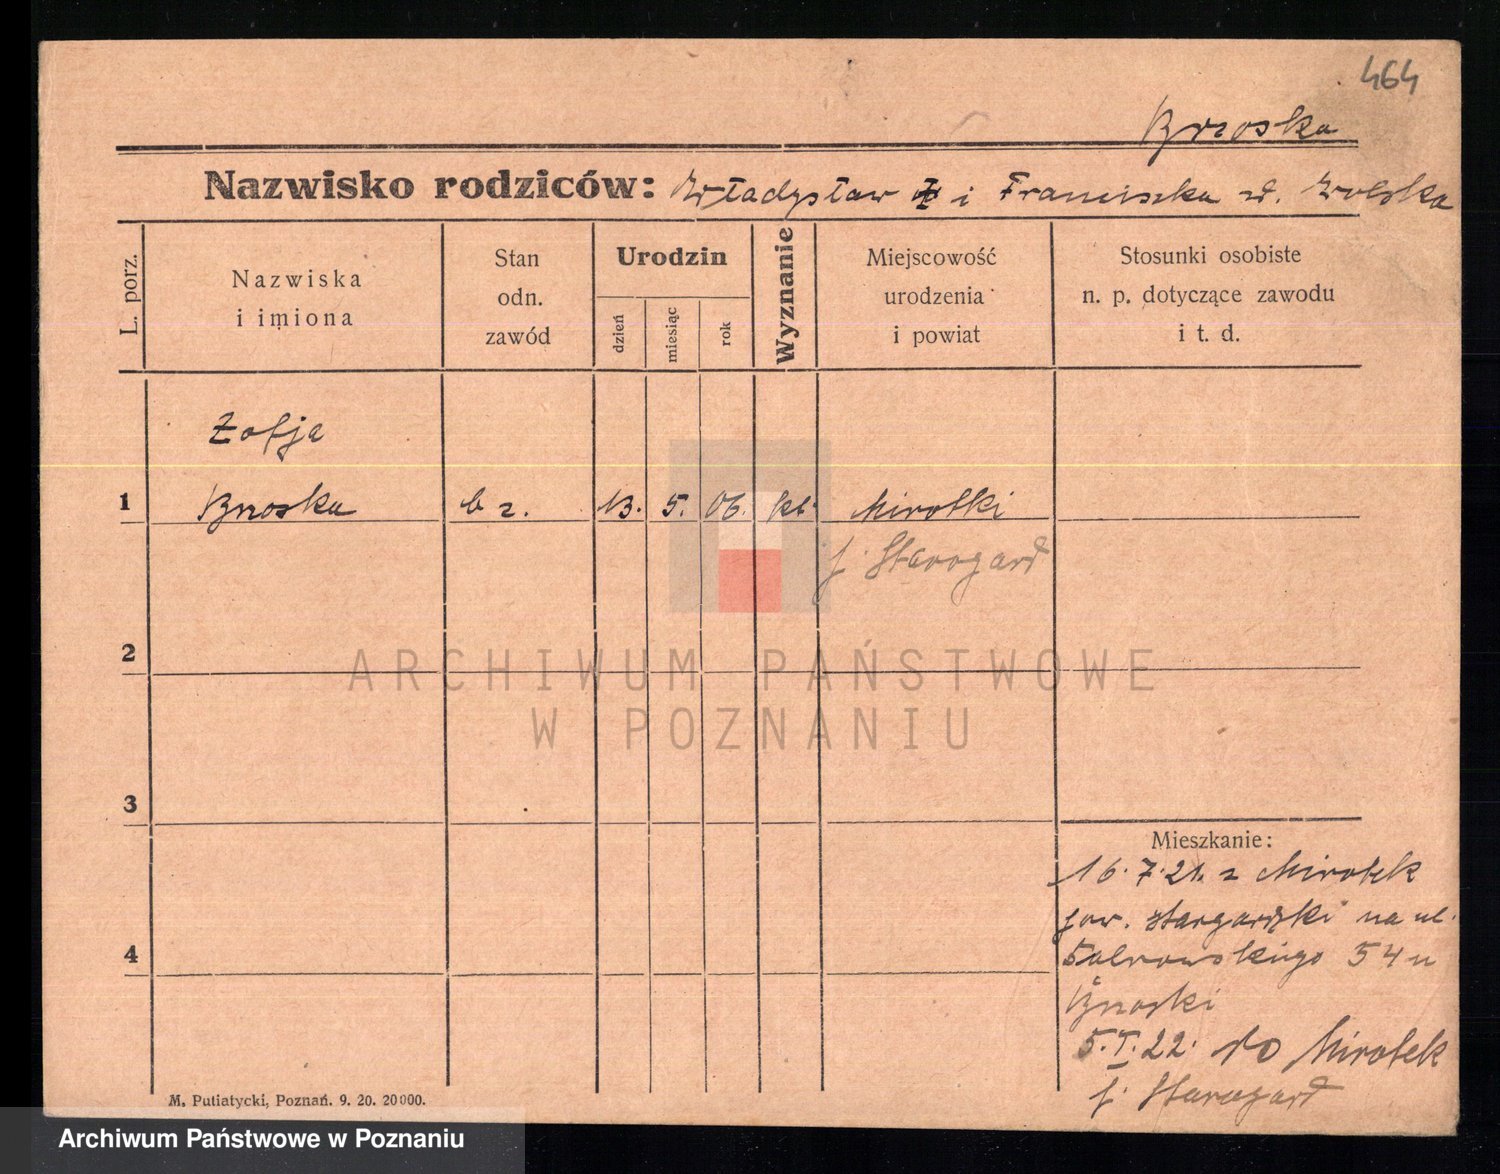 464
Brzoska
Nazwisko rodziców: Władysław i Franciszka zd. Wolska
L. porz.
Nazwiska
i imiona
Stan
odn.
zawód
Urodzin
dzień
miesiąc
rok
Wyznanie
Miejscowość
urodzenia
i powiat
Stosunki osobiste
n. p. dotyczące zawodu
i t. d.
Zofja
1 Brzoska b z. 13. 5. 06. kt. Mirotki
p. Starogard
2
ARCHIWUM PAŃSTWOWE
W POZNANIU
3
4
Mieszkanie:
16.7.21. z Mirotek
pow. stargardzki na ul.
54 u
Brzoski
5.I.22. do Mirotek
p. Starogard
M. Putiatycki, Poznań. 9. 20. 20000.
Archiwum Państwowe w Poznaniu